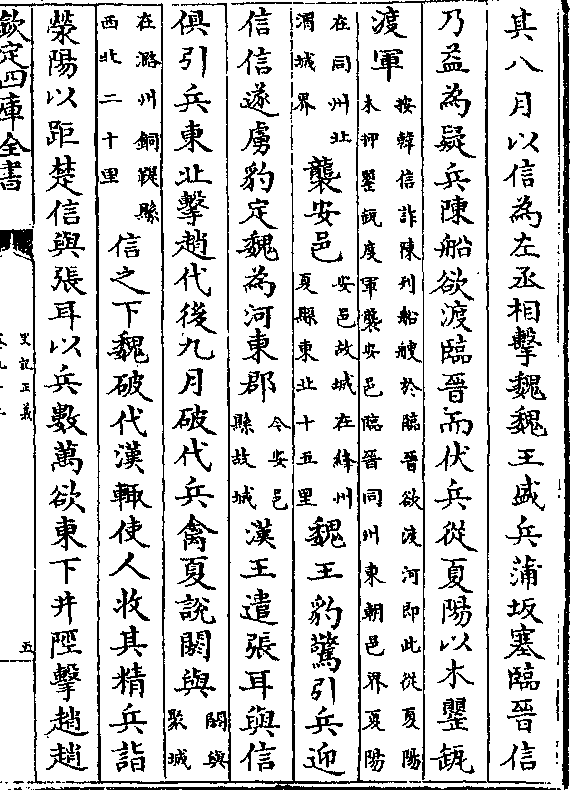 其八月以信為左丞相擊魏魏王盛兵蒲坂塞臨晉信
乃益為疑兵陳船欲渡臨晉而伏兵從夏陽以木罌缻
渡軍按韓信詐陳列船艘於臨晉欲渡河即此從夏陽木押罌缻度軍襲安邑臨晉同州東朝邑界夏陽
在同州北渭城界襲安邑安邑故城在絳州夏縣東北十五里魏王豹驚引兵迎
信信遂虜豹定魏為河東郡今安邑縣故城漢王遣張耳與信
俱引兵東北擊趙代後九月破代兵禽夏說閼與閼與聚城
在潞州銅鞮縣西北二十里信之下魏破代漢輒使人收其精兵詣
滎陽以距楚信與張耳以兵數萬欲東下井陘擊趙趙
欽定四庫全書
史記正義
五